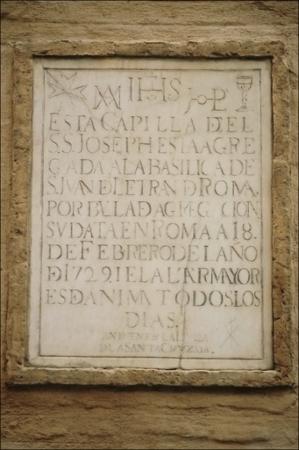 IHS
ESTA CAPILLA DEL
S.S. JOSEPH ESTA AGRE
GADA A LA BASILICA DE
S. JVN DLETRN D ROMA,
POR BULLA D AGREGCION
SU DATA EN ROMA A 18.
DE FEBRERO DEL AÑO
D 1729
ES D ANIM TODOS LOS
DIAS.